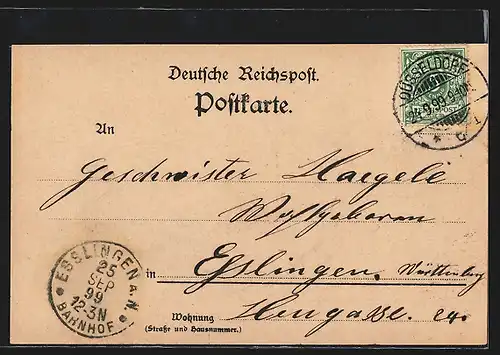 Deutsche Reichspost.
Postkarte.
DÜSSELDORF
An
Geschwister Haegele
Wohlgeboren
in Esslingen, Württemberg
Wohnung
(Straße und Hausnummer.)
24.
ESSLINGEN A.N.
25
SEP
99
12-3N
BAHNHOF